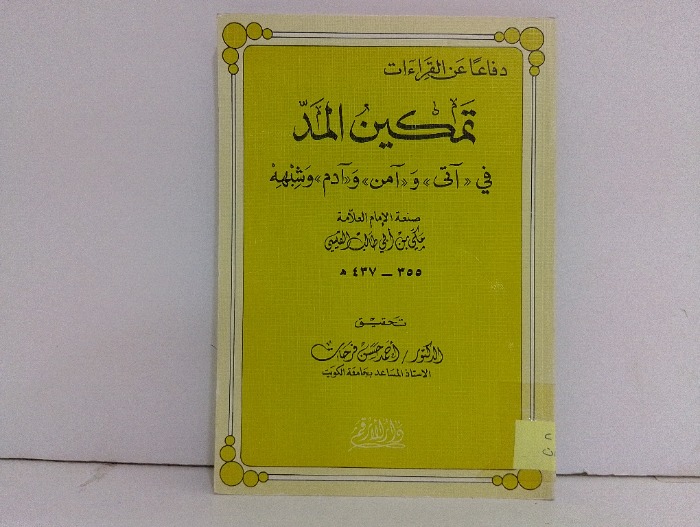 دفاعًا عن القراءات
تمكين المدّ
في «آتى» و«آمن» و«آدم» وشبهه
صنعة الإمام العلامة
مكي بن أبي طالب القيسي
٣٥٥ – ٤٣٧ هـ
تحقيق
الدكتور/ أحمد حسن فرحات
الاستاذ المساعد بجامعة الكويت
دار الأرقم